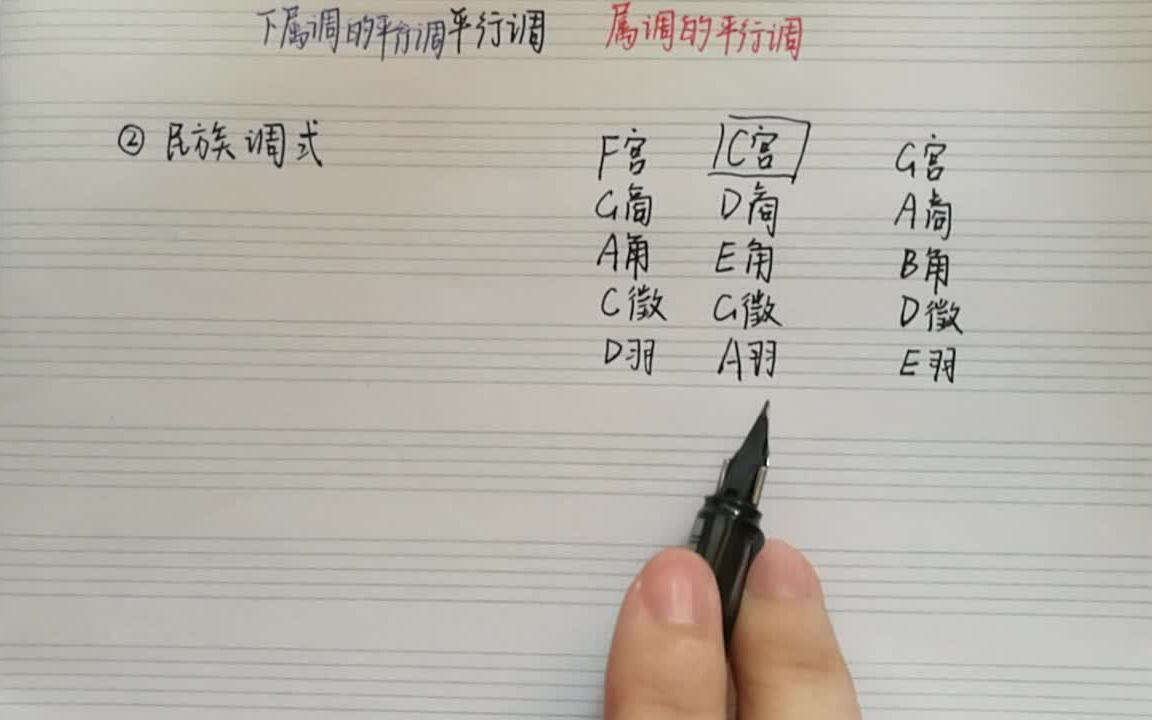 下属调的平行调 平行调 属调的平行调
② 民族调式 F宫 C宫 G宫
G商 D商 A商
A角 E角 B角
C徵 G徵 D徵
D羽 A羽 E羽